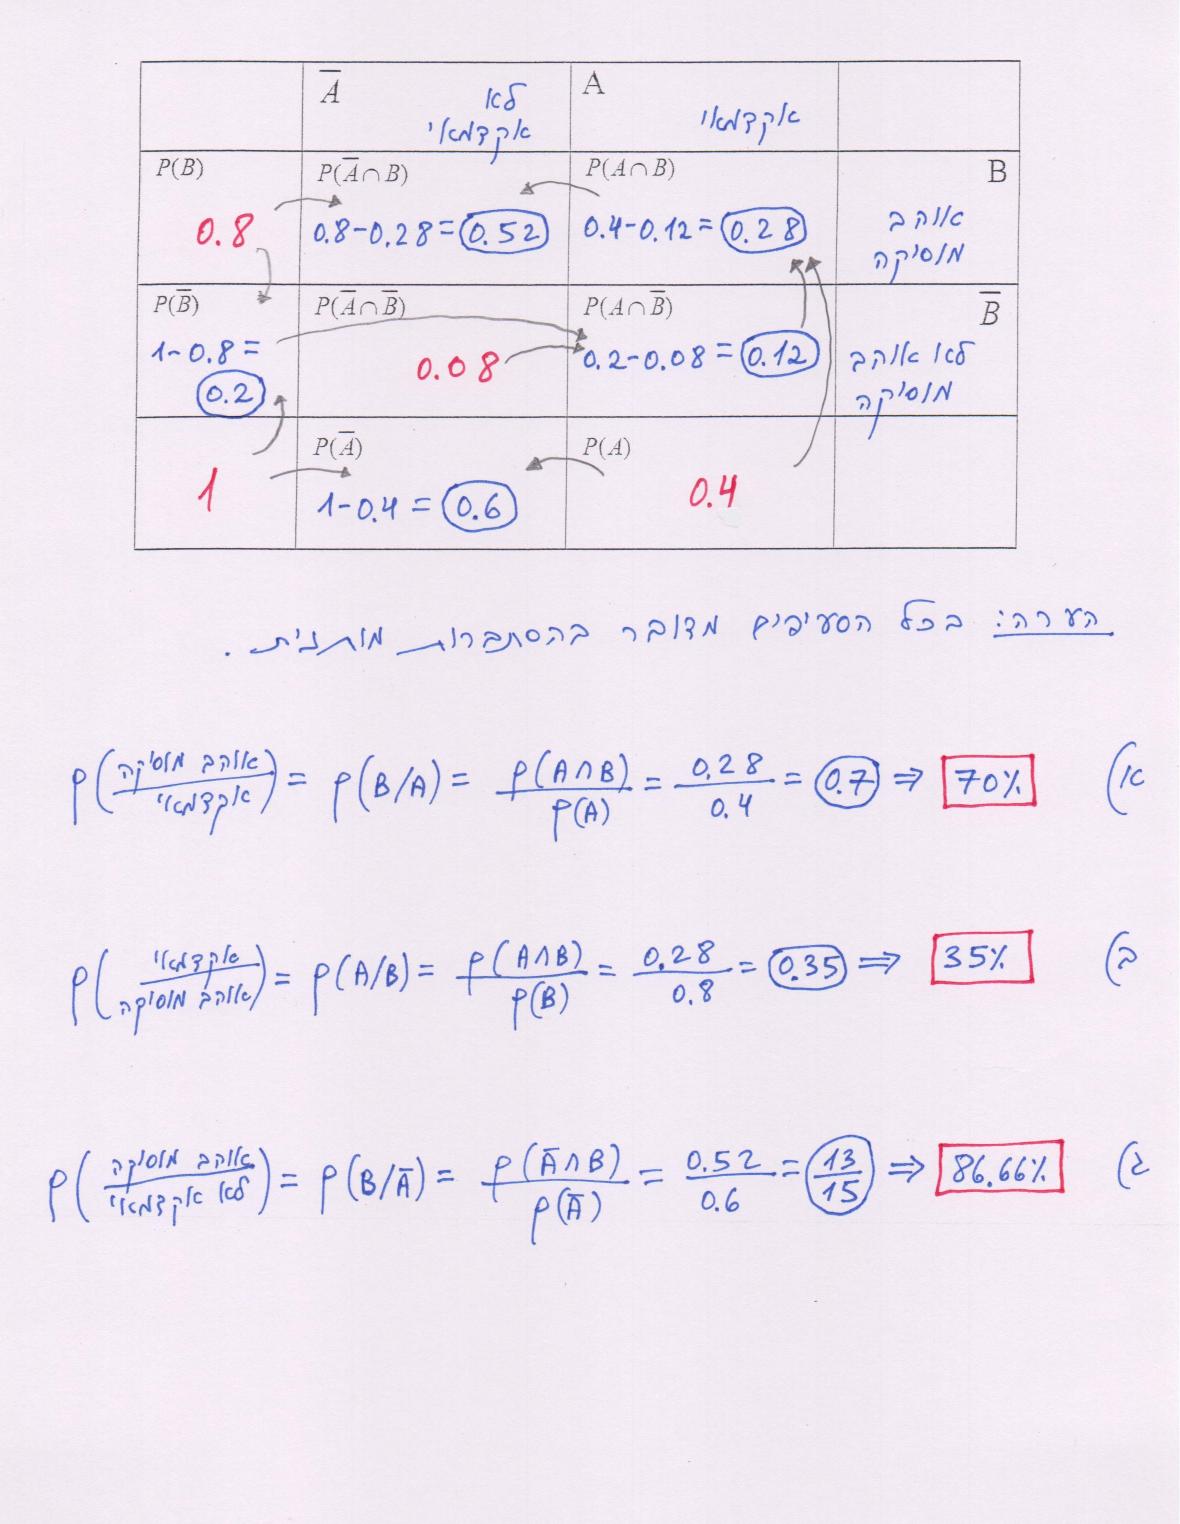 A̅ לא אקדמאי | A אקדמאי
P(B) 0.8 | P(A̅∩B) 0.8-0.28=0.52 | P(A∩B) 0.4-0.12=0.28 | B אוהב מוסיקה
P(B̅) 1-0.8=0.2 | P(A̅∩B̅) 0.08 | P(A∩B̅) 0.2-0.08=0.12 | B̅ לא אוהב מוסיקה
1 | P(A̅) 1-0.4=0.6 | P(A) 0.4
הערה: בכל הסעיפים מדובר בהסתברות מותנית.
א) P(אוהב מוסיקה/אקדמאי) = P(B/A) = P(A∩B)/P(A) = 0.28/0.4 = 0.7 ⇒ 70%
ב) P(אקדמאי/אוהב מוסיקה) = P(A/B) = P(A∩B)/P(B) = 0.28/0.8 = 0.35 ⇒ 35%
ג) P(אוהב מוסיקה/לא אקדמאי) = P(B/A̅) = P(A̅∩B)/P(A̅) = 0.52/0.6 = 13/15 ⇒ 86.66%